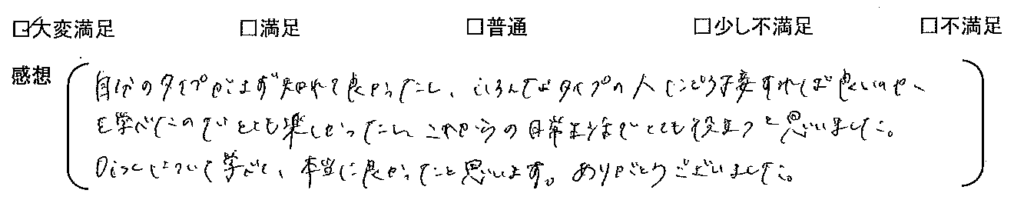 ☑大変満足 □満足 □普通 □少し不満足 □不満足
感想
自分のタイプがまず知れて良かったし、いろんなタイプの人にどう接すれば良いのか、
を学べたのでとても楽しかったし、これからの日常生活でとても役立つと思いました。
Discについて学べて、本当に良かったなと思います。ありがとうございました。